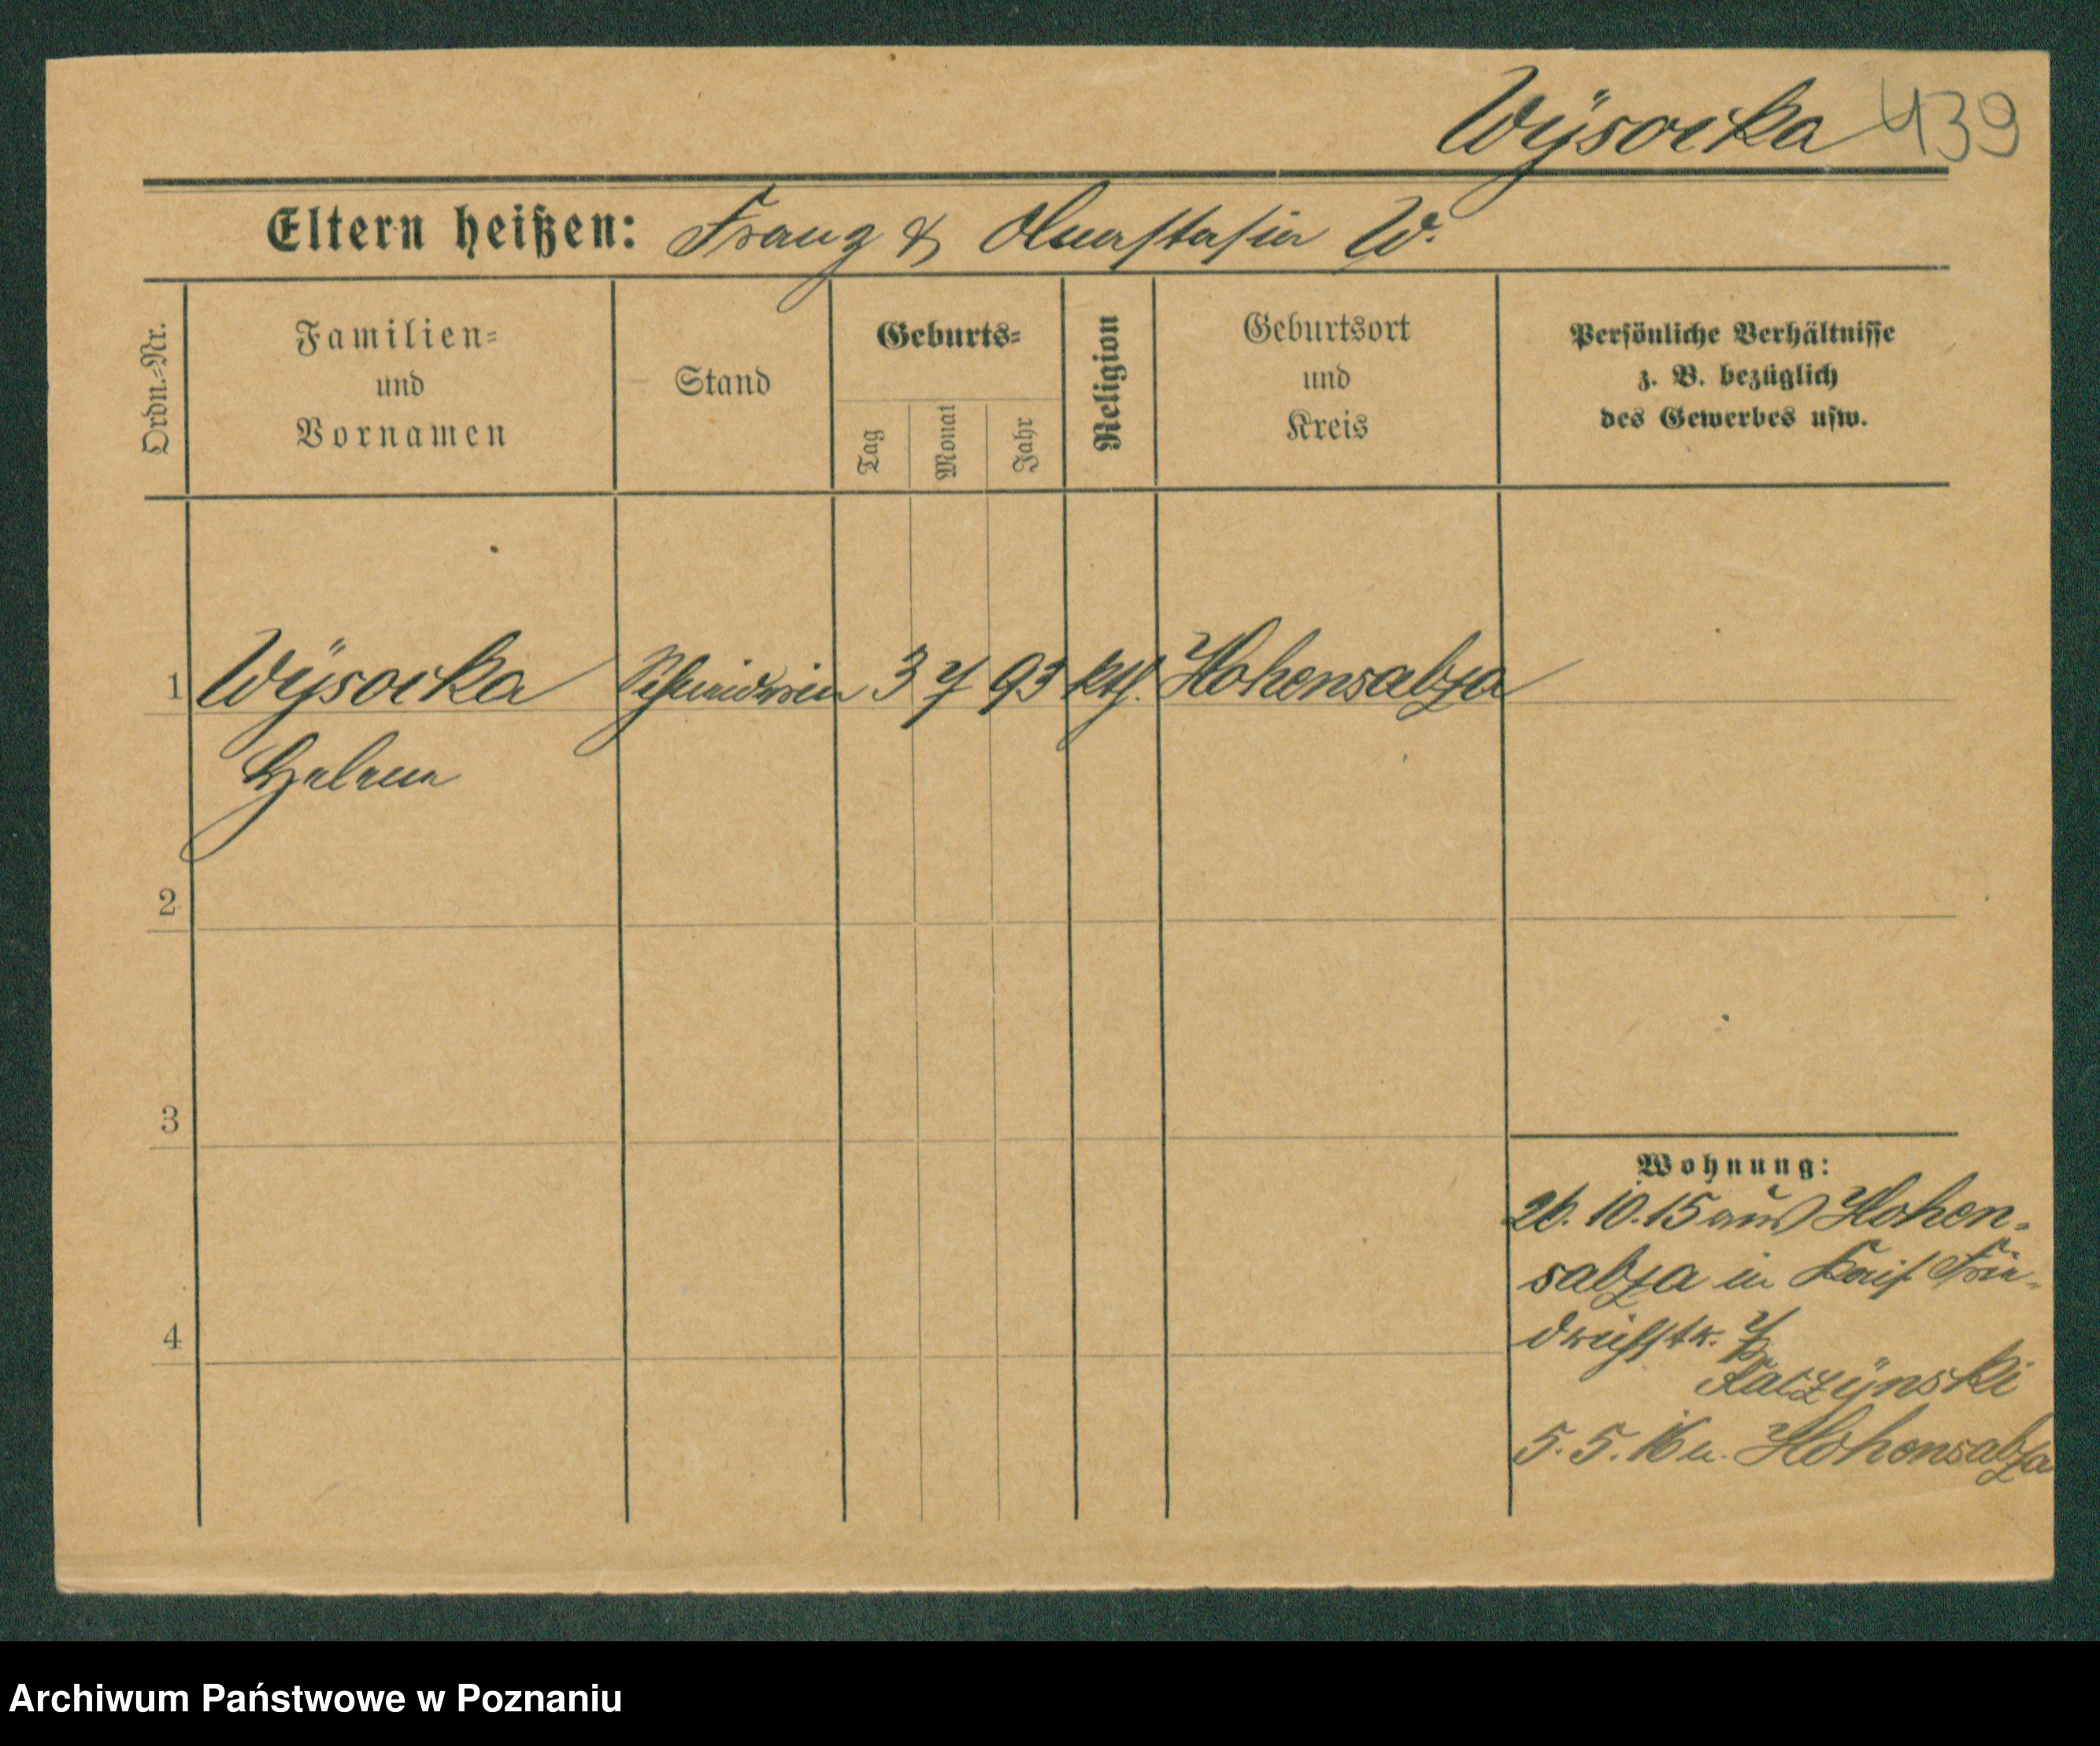 Wÿsocka 439
Eltern heißen: Franz & Anastasia W.
Ordn.=Nr.
Familien=
und
Vornamen
Stand
Geburts=
Tag
Monat
Jahr
Religion
Geburtsort
und
Kreis
Persönliche Verhältnisse
z. B. bezüglich
des Gewerbes usw.
1 Wÿsocka Schneiderin 3 7 93 kth. Hohensalza
Helena
2
3
4
Wohnung:
26. 10. 15 aus Hohen-
salza in Kais. Frie-
drichstr. 7
5. 5. 16 n. Hohensalza
Archiwum Państwowe w Poznaniu